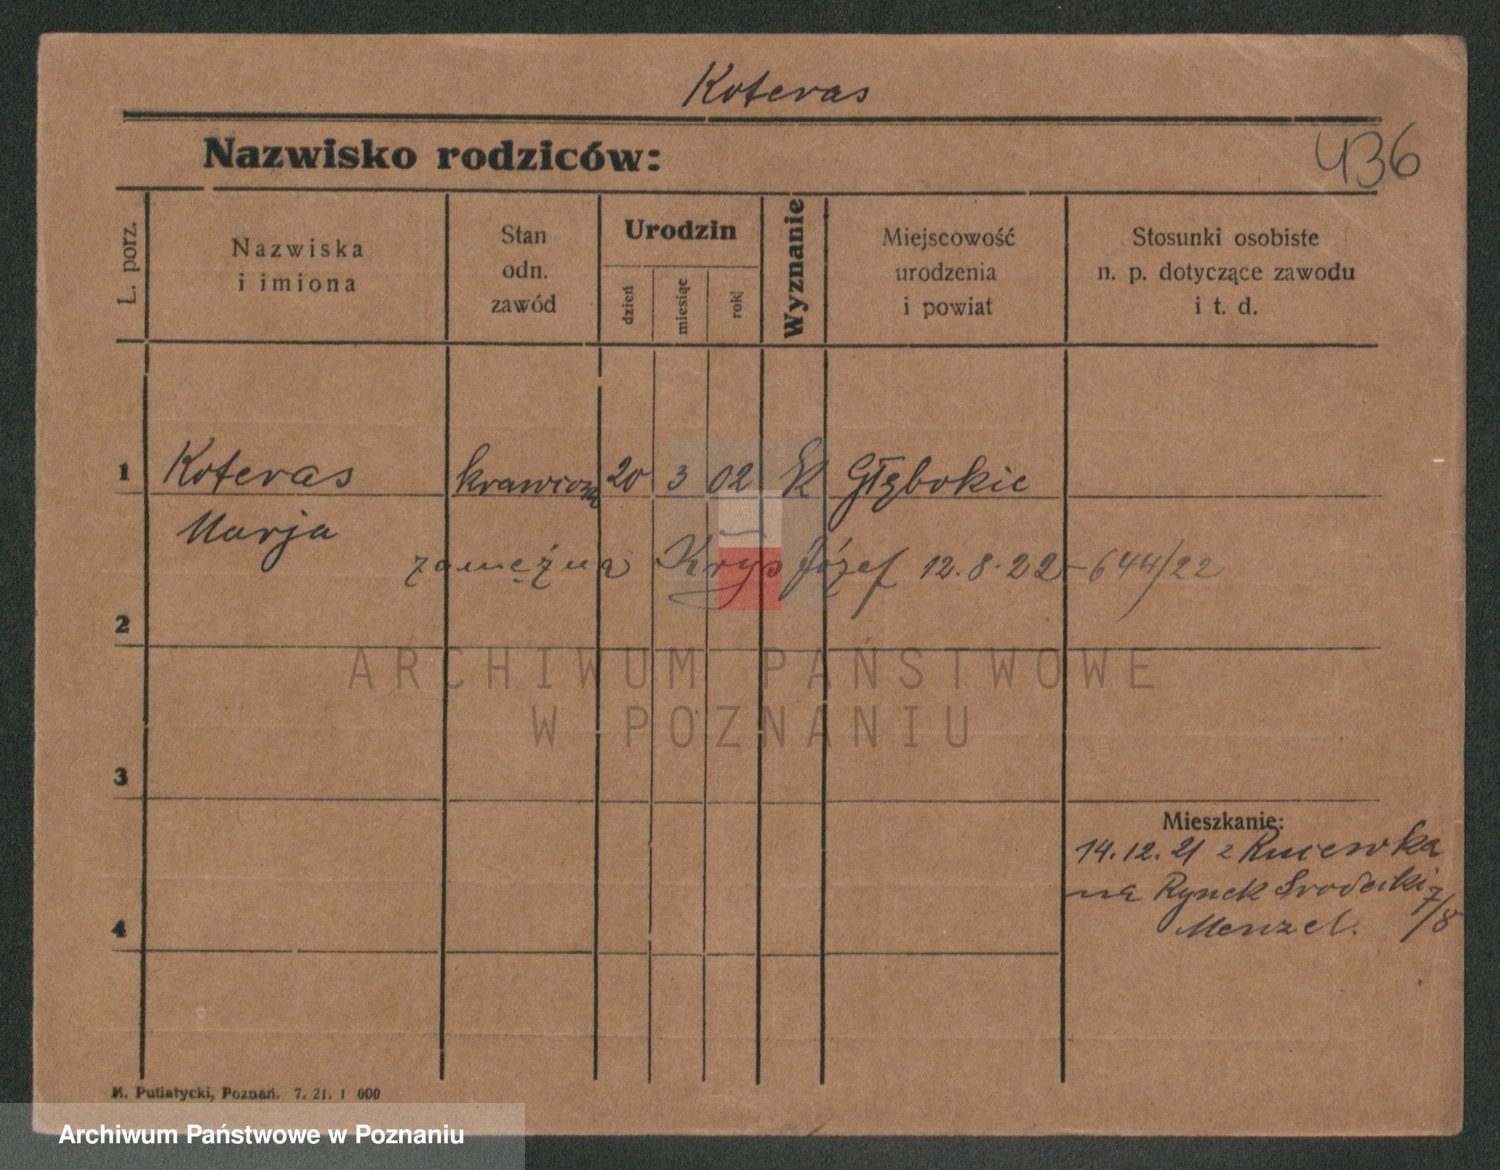 Koteras
Nazwisko rodziców:
436
L. porz.
Nazwiska
i imiona
Stan
odn.
zawód
Urodzin
dzień
miesiąc
rok
Wyznanie
Miejscowość
urodzenia
i powiat
Stosunki osobiste
n. p. dotyczące zawodu
i t. d.
1 Koteras krawiczą 20 3 02 Głębokie
Marja
zamężna Krys Józef 12.8.22 - 644/22
2
ARCHIWUM PAŃSTWOWE
W POZNANIU
3
Mieszkanie:
14.12.21 z
na Rynek Srodecki 7/8
4 Menzel.
M. Putiatycki, Poznań. 7. 21. 1 000
Archiwum Państwowe w Poznaniu